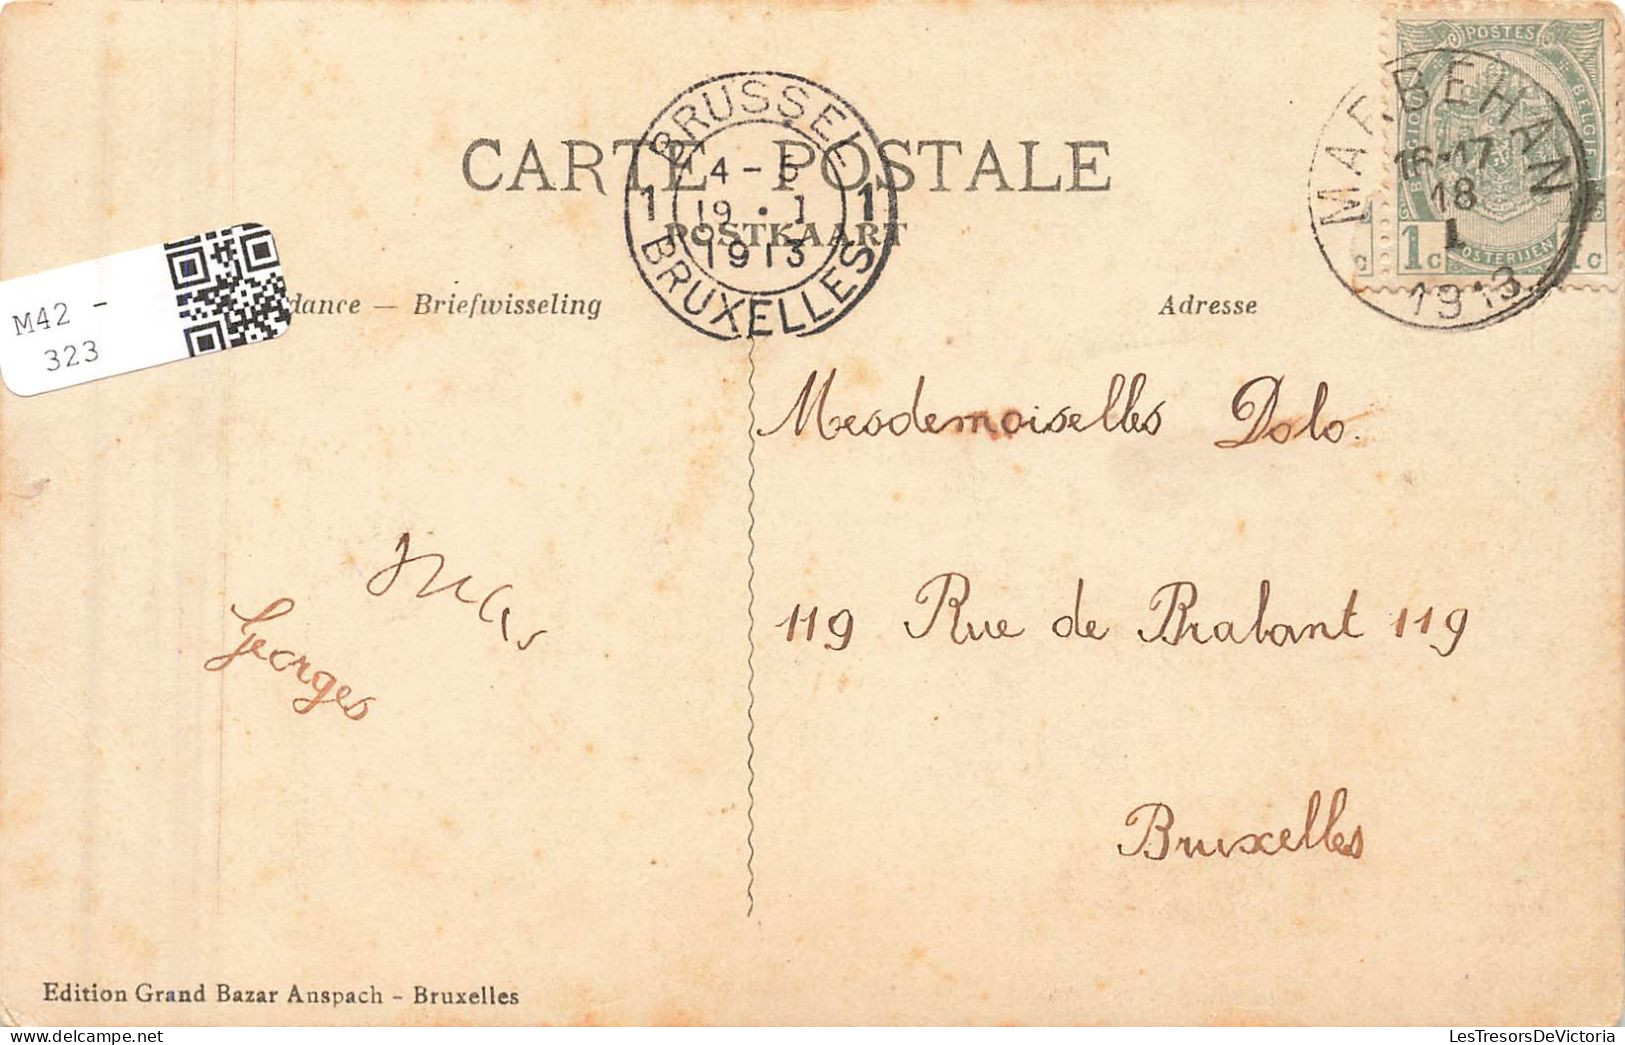 CARTE POSTALE
POSTKAART
BRUSSEL
4-5
19 • I
1913
1 1
BRUXELLES
MARBEHAN
16-17
18
I
1913
POSTES
BELGIQUE BELGIË
POSTERIJEN
1c 1c
M42 -
323
dance — Briefwisseling
Adresse
Mesdemoiselles Dolo.
119 Rue de Brabant 119
Bruxelles
Georges
Edition Grand Bazar Anspach - Bruxelles
LesTresorsDeVictoria